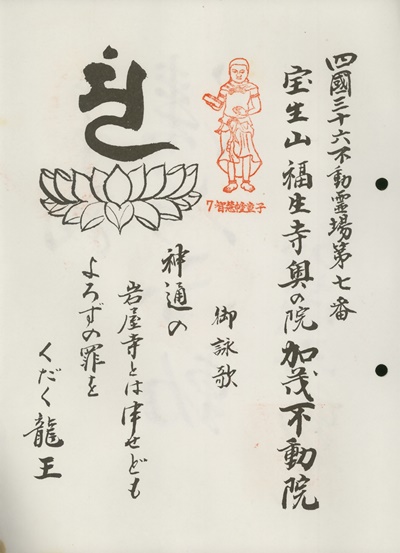 四國三十六不動霊場第七番
宝生山福生寺奥の院加茂不動院
7智慧幢童子
御詠歌
神通の
岩屋寺とは申せども
よろずの罪を
くだく龍王